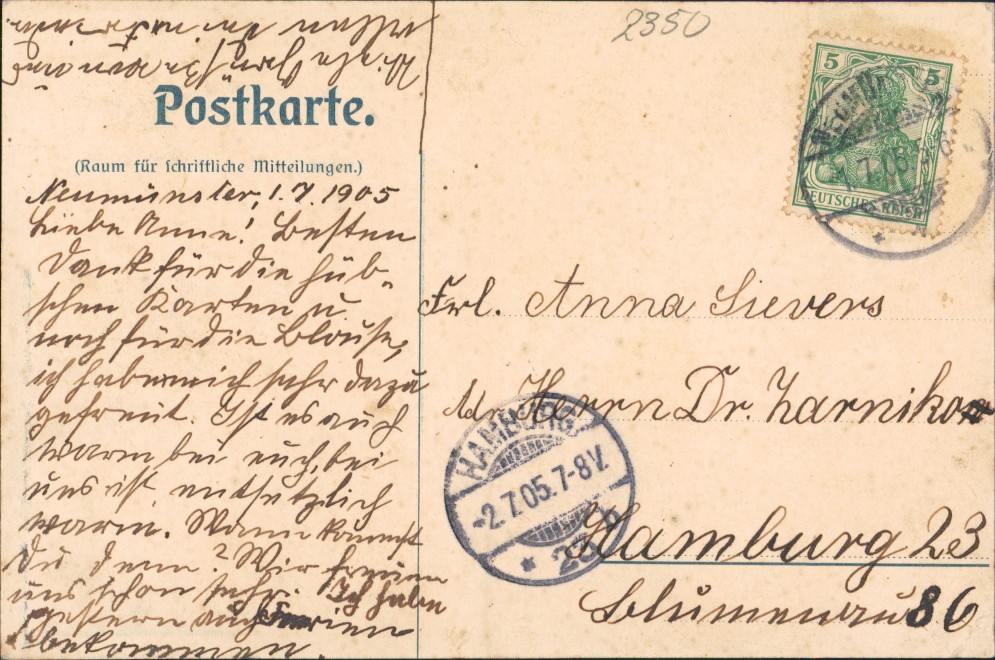 2350
Postkarte.
(Raum für schriftliche Mitteilungen.)
Neumünster, 1.7.1905
Liebe Anne! Besten
Dank für die hüb-
schen Karten u.
noch für die Blouse,
ich habe mich sehr dazu
gefreut. Ist es auch
warm bei euch, bei
uns ist entsetzlich
warm. Wann kommst
du denn? Wir freuen
uns schon sehr. Ich habe
gestern auch Ferien
bekommen.
Viele Grüße von
allen
5 5
DEUTSCHES REICH
Frl. Anna Sievers
Herrn Dr. Zarniko
Hamburg 23
Blumenau 86
HAMBURG
-2.7.05.7-8V.
* 23 b